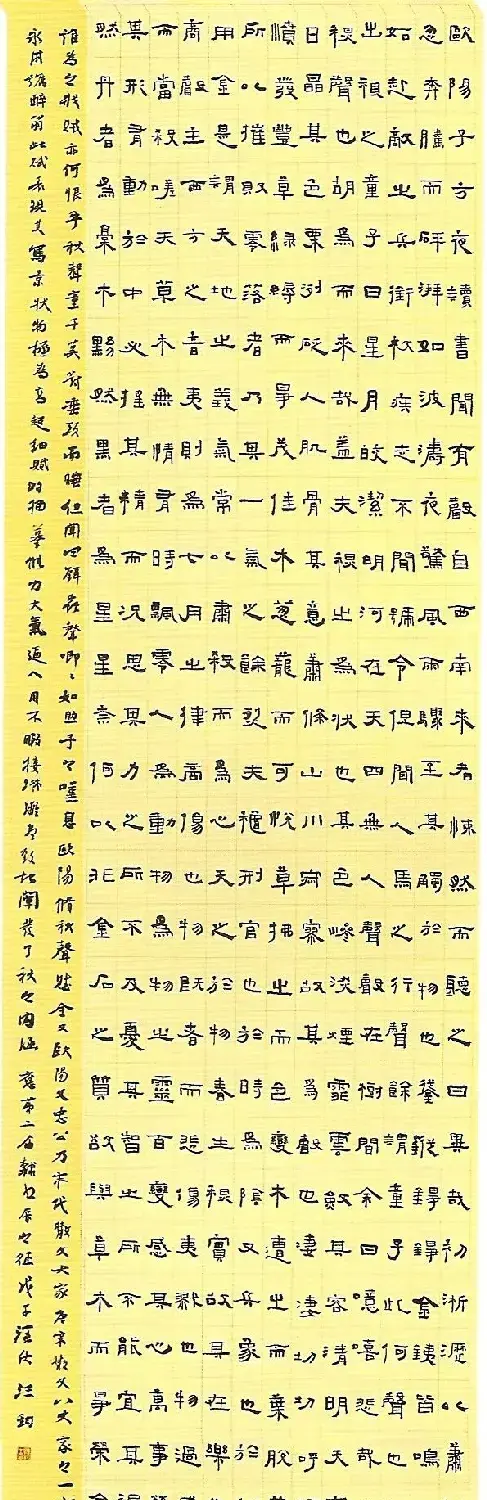 歐陽子方夜讀書聞有聲自西南來者悚然而聽之曰異哉初淅瀝以蕭
忽奔騰而砰湃如波濤夜驚風雨驟至其觸於物也鏦鏦錚錚金鐵皆鳴
如赴敵之兵銜枚疾走不聞號令但聞人馬之行聲餘謂童子此何聲也
出視之童子曰星月皎潔明河在天四無人聲聲在樹間余曰噫嘻悲哉
秋聲也胡為而來哉蓋夫秋之為狀也其色慘淡煙霏雲斂其容清明天
日晶其色栗冽砭人肌骨其意蕭條山川寂寥故其為聲也淒淒切切呼
憤發豐草綠縟而爭茂佳木蔥蘢而可悅草拂之而色變木遭之而葉脫
所以摧敗零落者乃其一氣之餘烈夫秋刑官也於時為陰又兵象也於
用金是謂天地之義氣常以肅殺而為心天之於物春生秋實故其在樂也
商聲主西方之音夷則為七月之律商傷也物既老而悲傷夷戮也物過
而當殺嗟夫草木無情有時飄零人為動物為物之靈百憂感其心萬事
其形有動於中必搖其精而況思其力之所不及憂其智之所不能宜其
然丹者為槁木黟然黑者為星星奈何以非金石之質欲與草木而爭榮
誰為之戕賊亦何恨乎秋聲童子莫對垂頭而睡但聞四壁蟲聲唧唧如助予之嘆息歐陽脩秋聲賦全文歐陽文忠公乃宋代散文大家唐宋散文八大家之一
永叔號醉翁此賦表現其寫景狀物極為高超細膩的描摹 力大氣 目不暇接 發了秋之內涵 戊子